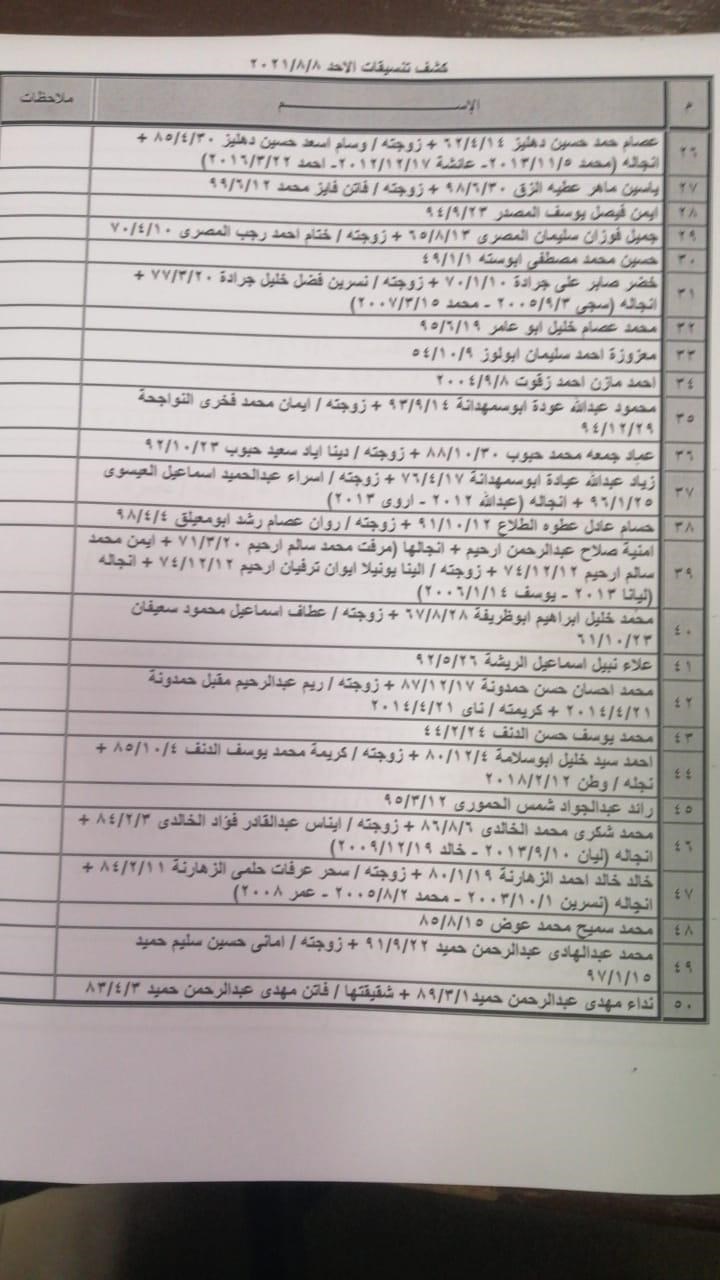 كشف تنسيقات الاحد ٢٠٢١/٨/٨
م الإســـــم ملاحظات
٢٦ عصام حمد حسين دهليز ٦٢/٤/١٤ + زوجته / وسام اسعد حسين دهليز ٨٥/٤/٣٠ +
انجاله (محمد ٢٠١٣/١١/٥- عائشة ٢٠١٢/١٢/١٧- احمد ٢٠١٦/٣/٢٢)
٢٧ ياسين ماهر عطيه الزق ٩٨/٦/٣٠ + زوجته / فاتن فايز محمد ٩٩/٦/١٢
٢٨ ايمن فيصل يوسف المصدر ٩٤/٩/٢٣
٢٩ جميل فوزان سليمان المصرى ٦٥/٨/١٣ + زوجته / ختام احمد رجب المصرى ٧٠/٤/١٠
٣٠ حسين محمد مصطفى ابوسته ٤٩/١/١
٣١ خضر صابر على جرادة ٧٠/١/١٠ + زوجته / نسرين فضل خليل جرادة ٧٧/٣/٢٠ +
انجاله (سجى ٢٠٠٥/٩/٣ - محمد ٢٠٠٧/٣/١٥)
٣٢ محمد عصام خليل ابو عامر ٩٥/٦/١٩
٣٣ معزوزة احمد سليمان ابولوز ٥٤/١٠/٩
٣٤ احمد مازن احمد زقوت ٢٠٠٤/٩/٨
٣٥ محمود عبدالله عودة ابوسمهدانة ٩٣/٩/١٤ + زوجته / ايمان محمد فخرى النواجحة
٩٤/١٢/٢٩
٣٦ عماد جمعه محمد حبوب ٨٨/١٠/٣٠ + زوجته / دينا اياد سعيد حبوب ٩٢/١٠/٢٣
٣٧ زياد عبدالله عيادة ابوسمهدانة ٧٦/٤/١٧ + زوجته / اسراء عبدالحميد اسماعيل العيسوى
٩٦/١/٢٥ + انجاله (عبدالله ٢٠١٢ - اروى ٢٠١٣)
٣٨ حسام عادل عطوه الطلاع ٩١/١٠/١٢ + زوجته / روان عصام رشد ابومعيلق ٩٨/٤/٤
٣٩ امنية صلاح عبدالرحمن ارحيم + انجالها (مرفت محمد سالم ارحيم ٧١/٣/٢٠ + ايمن محمد
سالم ارحيم ٧٤/١٢/١٢ + زوجته / الينا يونيلا ايوان ترفيان ارحيم ٧٤/١٢/١٢ + انجاله
(ليانا ٢٠١٣ - يوسف ٢٠٠٦/١/١٤)
٤٠ محمد خليل ابراهيم ابوظريفة ٦٧/٨/٢٨ + زوجته / عطاف اسماعيل محمود سعيفان
٦١/١٠/٢٣
٤١ علاء نبيل اسماعيل الريشة ٩٢/٥/٢٦
٤٢ محمد احسان حسن حمدونة ٨٧/١٢/١٧ + زوجته / ريم عبدالرحيم مقبل حمدونة
٢٠١٤/٤/٢١ + كريمته / ناى ٢٠١٤/٤/٢١
٤٣ محمد يوسف حسن الدنف ٤٤/٢/٢٤
٤٤ احمد سيد خليل ابوسلامة ٨٠/١٢/٤ + زوجته / كريمة محمد يوسف الدنف ٨٥/١٠/٤ +
نجله / وطن ٢٠١٨/٢/١٢
٤٥ رائد عبدالجواد شمس الحمورى ٩٥/٣/١٢
٤٦ محمد شكرى محمد الخالدى ٨٦/٨/٦ + زوجته / ايناس عبدالقادر فؤاد الخالدى ٨٤/٢/٣ +
انجاله (ليان ٢٠١٣/٩/١٠ - خالد ٢٠٠٩/١٢/١٩)
٤٧ خالد خالد احمد الزهارنة ٨٠/١/١٩ + زوجته / سحر عرفات حلمى الزهارنة ٨٤/٢/١١ +
انجاله (نسرين ٢٠٠٣/١٠/١ - محمد ٢٠٠٥/٨/٢ - عمر ٢٠٠٨)
٤٨ محمد سميح محمد عوض ٨٥/٨/١٥
٤٩ محمد عبدالهادى عبدالرحمن حميد ٩١/٩/٢٢ + زوجته / امانى حسين سليم حميد
٩٧/١/١٥
٥٠ نداء مهدى عبدالرحمن حميد٨٩/٣/١ + شقيقتها / فاتن مهدى عبدالرحمن حميد ٨٣/٤/٣